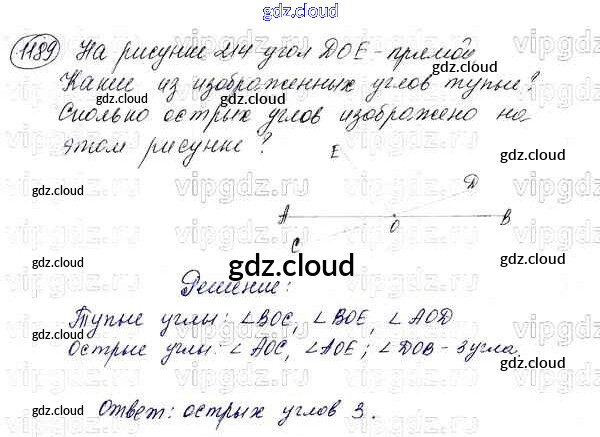 gdz.cloud
gdz.cloud gdz.cloud
1189 На рисунке 214 угол DOE - прямой
Какие из изображенных углов тупые?
gdz.cloud
Сколько острых углов изображено на
этом рисунке?
E
gdz.cloud
gdz.cloud
D
gdz.cloud
A
O
B
C
gdz.cloud
gdz.cloud
gdz.cloud
gdz.cloud
Решение:
Тупые углы: ∠BOC, ∠BOE, ∠AOD
gdz.cloud
Острые углы: ∠AOC, ∠AOE; ∠DOB - 3 угла.
gdz.cloud
gdz.cloud
Ответ: острых углов 3.
gdz.cloud
vipgdz.ru